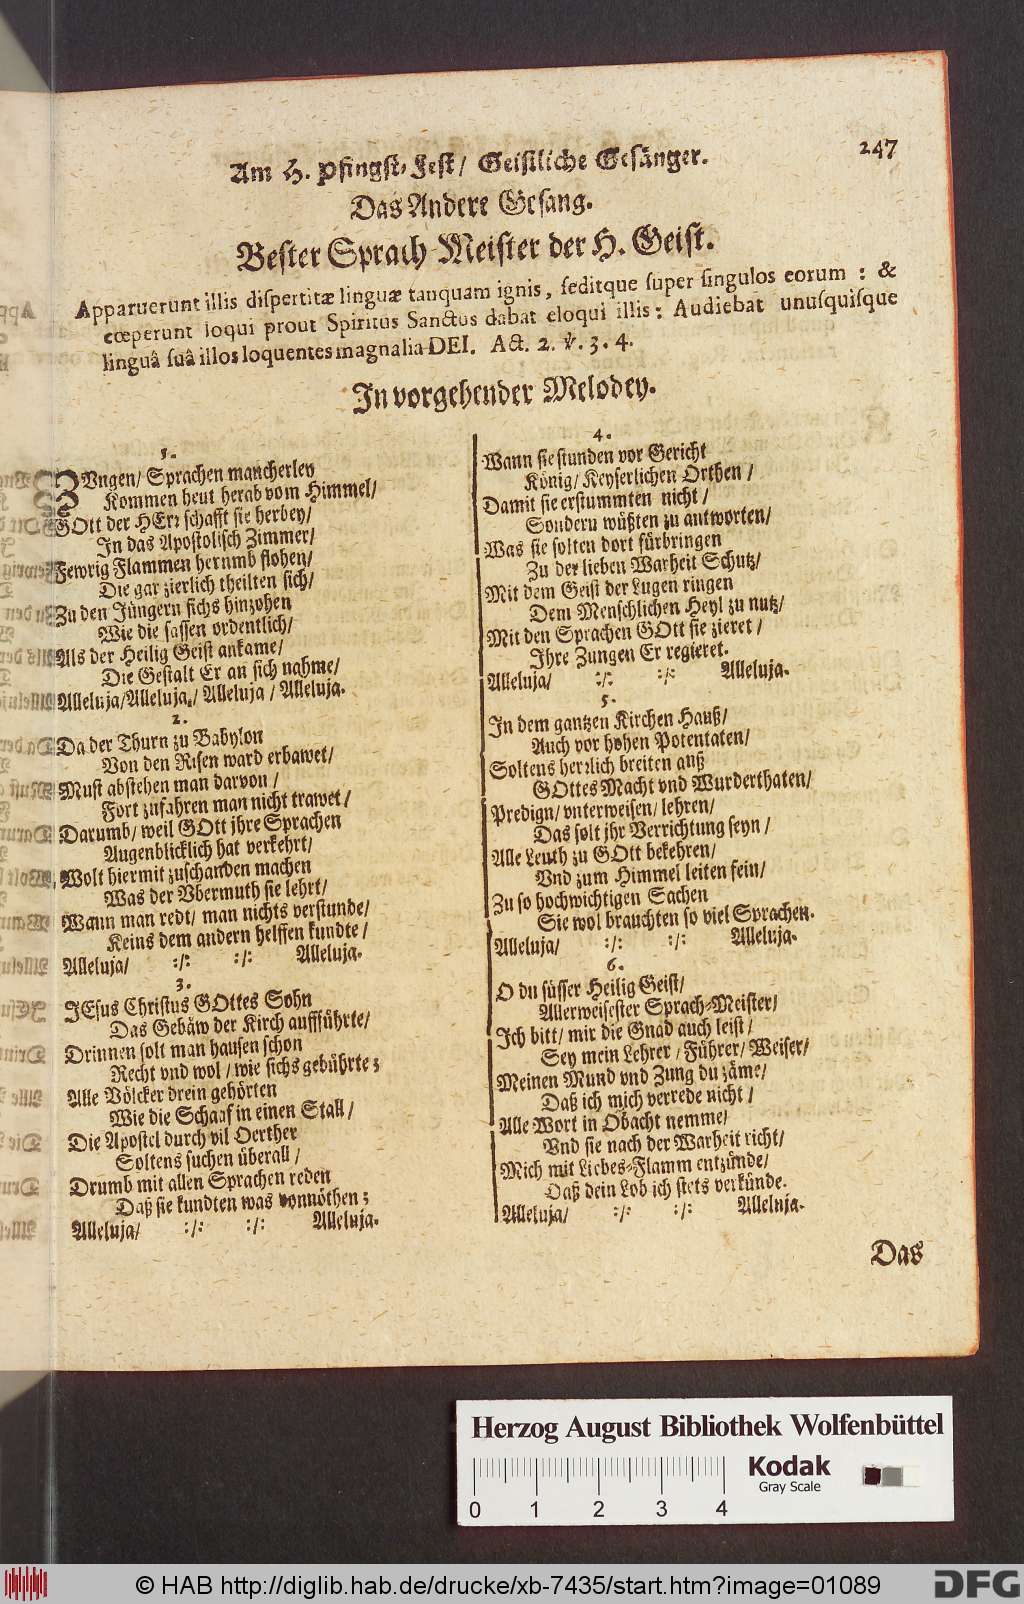 Am H. Pfingst-Fest/ Geistliche Gesänger.
247
Das Andere Gesang.
Bester Sprach-Meister der H. Geist.
Apparuerunt illis dispertitæ linguæ tanquam ignis, seditque super singulos eorum : &
cœperunt loqui prout Spiritus Sanctus dabat eloqui illis : Audiebat unusquisque
linguâ suâ illos loquentes magnalia DEI. Act. 2. ℣. 3. 4.
In vorgehender Melodey.
1.
ZUngen/ Sprachen mancherley
Kommen heut herab vom Himmel/
GOtt der HErr schafft sie herbey/
In das Apostolisch Zimmer/
Fewrig Flammen herumb flohen/
Die gar zierlich theilten sich/
Zu den Jüngern sichs hinzohen
Wie die sassen ordentlich/
Als der Heilig Geist ankame/
Die Gestalt Er an sich nahme/
Alleluja/Alleluja/ Alleluja/ Alleluja.
2.
Da der Thurn zu Babylon
Von den Risen ward erbawet/
Must abstehen man darvon/
Fort zufahren man nicht trawet/
Darumb/ weil GOtt jhre Sprachen
Augenblicklich hat verkehrt/
Wolt hiermit zuschanden machen
Was der Vbermuth sie lehrt/
Wann man redt/ man nichts verstunde/
Keins dem andern helffen kundte/
Alleluja/ :/: :/: Alleluja.
3.
JEsus Christus GOttes Sohn
Das Gebäw der Kirch auffführte/
Drinnen solt man hausen schon
Recht vnd wol/ wie sichs gebührte;
Alle Völcker drein gehörten
Wie die Schaaf in einen Stall/
Die Apostel durch vil Oerther
Soltens suchen überall/
Drumb mit allen Sprachen reden
Daß sie kundten was vonnöthen;
Alleluja/ :/: :/: Alleluja.
4.
Wann sie stunden vor Gericht
König/ Keyserlichen Orthen/
Damit sie erstummten nicht/
Sondern wüßten zu antworten/
Was sie solten dort fürbringen
Zu der lieben Warheit Schutz/
Mit dem Geist der Lugen ringen
Dem Menschlichen Heyl zu nutz/
Mit den Sprachen GOtt sie zieret/
Ihre Zungen Er regieret.
Alleluja/ :/: :/: Alleluja.
5.
In dem gantzen Kirchen Hauß/
Auch vor hohen Potentaten/
Soltens herrlich breiten auß
GOttes Macht vnd Wurderthaten/
Predign/ vnterweisen/ lehren/
Das solt jhr Verrichtung seyn/
Alle Leuth zu GOtt bekehren/
Vnd zum Himmel leiten fein/
Zu so hochwichtigen Sachen
Sie wol brauchten so viel Sprachen.
Alleluja/ :/: :/: Alleluja.
6.
O du süsser Heilig Geist/
Allerweisester Sprach-Meister/
Ich bitt/ mir die Gnad auch leist/
Sey mein Lehrer/ Führer/ Weiser/
Meinen Mund vnd Zung du zäme/
Daß ich mich verrede nicht/
Alle Wort in Obacht nemme/
Vnd sie nach der Warheit richt/
Mich mit Liebes-Flamm entzünde/
Daß dein Lob ich stets verkünde.
Alleluja/ :/: :/: Alleluja.
Das
Herzog August Bibliothek Wolfenbüttel
Kodak
Gray Scale
0 1 2 3 4
© HAB http://diglib.hab.de/drucke/xb-7435/start.htm?image=01089
DFG